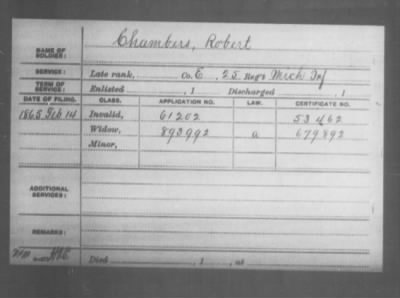 NAME OF SOLDIER: Chambers, Robert
SERVICE: Late rank, Co. E, 25 Reg't Mich Inf
TERM OF SERVICE: Enlisted , 1 Discharged , 1
DATE OF FILING. CLASS. APPLICATION NO. LAW. CERTIFICATE NO.
1865 Feb 14 Invalid, 61202 53462
Widow, 893992 a 679892
Minor,
ADDITIONAL SERVICES:
REMARKS:
Died , 1 , at